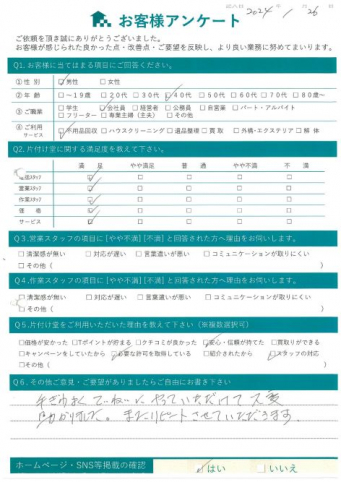 2024 / 26
お客様アンケート
ご依頼を頂き誠にありがとうございました。
お客様が感じられた良かった点・改善点・ご要望を反映し、より良い業務に努めてまいります。
Q1.お客様に当てはまる項目にご回答ください。
①性 別 □男性 □女性
②年 齢 □～19歳 □20代 □30代 □40代 □50代 □60代 □70代 □80歳～
③ご職業 □学生 □会社員 □経営者 □公務員 □自営業 □パート・アルバイト
□フリーター □専業主婦（主夫） □その他
④ご利用サービス □不用品回収 □ハウスクリーニング □遺品整理 □買取 □外構・エクステリア □解体
Q2.片付け堂に関する満足度を教えて下さい。
満 足 やや満足 普 通 やや不満 不 満
スタッフ □ □ □ □ □
営業スタッフ □ □ □ □ □
作業スタッフ □ □ □ □ □
価 格 □ □ □ □ □
サービス □ □ □ □ □
Q3.営業スタッフの項目に[やや不満][不満]と回答された方へ理由をお伺いします。
□清潔感が無い □対応が遅い □言葉遣いが悪い □コミュニケーションが取りにくい
□その他（ ）
Q4.作業スタッフの項目に[やや不満][不満]と回答された方へ理由をお伺いします。
□清潔感が無い □対応が遅い □言葉遣いが悪い □コミュニケーションが取りにくい
□その他（ ）
Q5.片付け堂をご利用いただいた理由を教えて下さい（※複数選択可）
□価格が安かった □Tポイントが貯まる □クチコミが良かった □安心・信頼が持てた □買取りができる
□キャンペーンをしていたから □必要な許可を取得している □紹介されたから □スタッフの対応
□その他（ ）
Q6.その他ご意見・ご要望がありましたらご自由にお書き下さい
手ぎわよくていねいにやっていただけて大変
助かりました。またリピートさせていただきます。
ホームページ・SNS等掲載の確認 □はい □いいえ